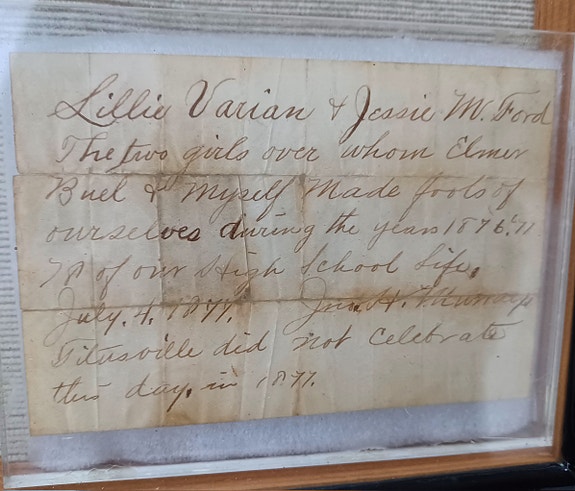 Lillie Varian & Jessie M. Ford
The two girls over whom Elmer
Buel & Myself Made fools of
ourselves during the years 1876, 77
78 of our High School Life.
July. 4. 1877. Jno. H. Murray
Titusville did not celebrate
this day. in 1877.